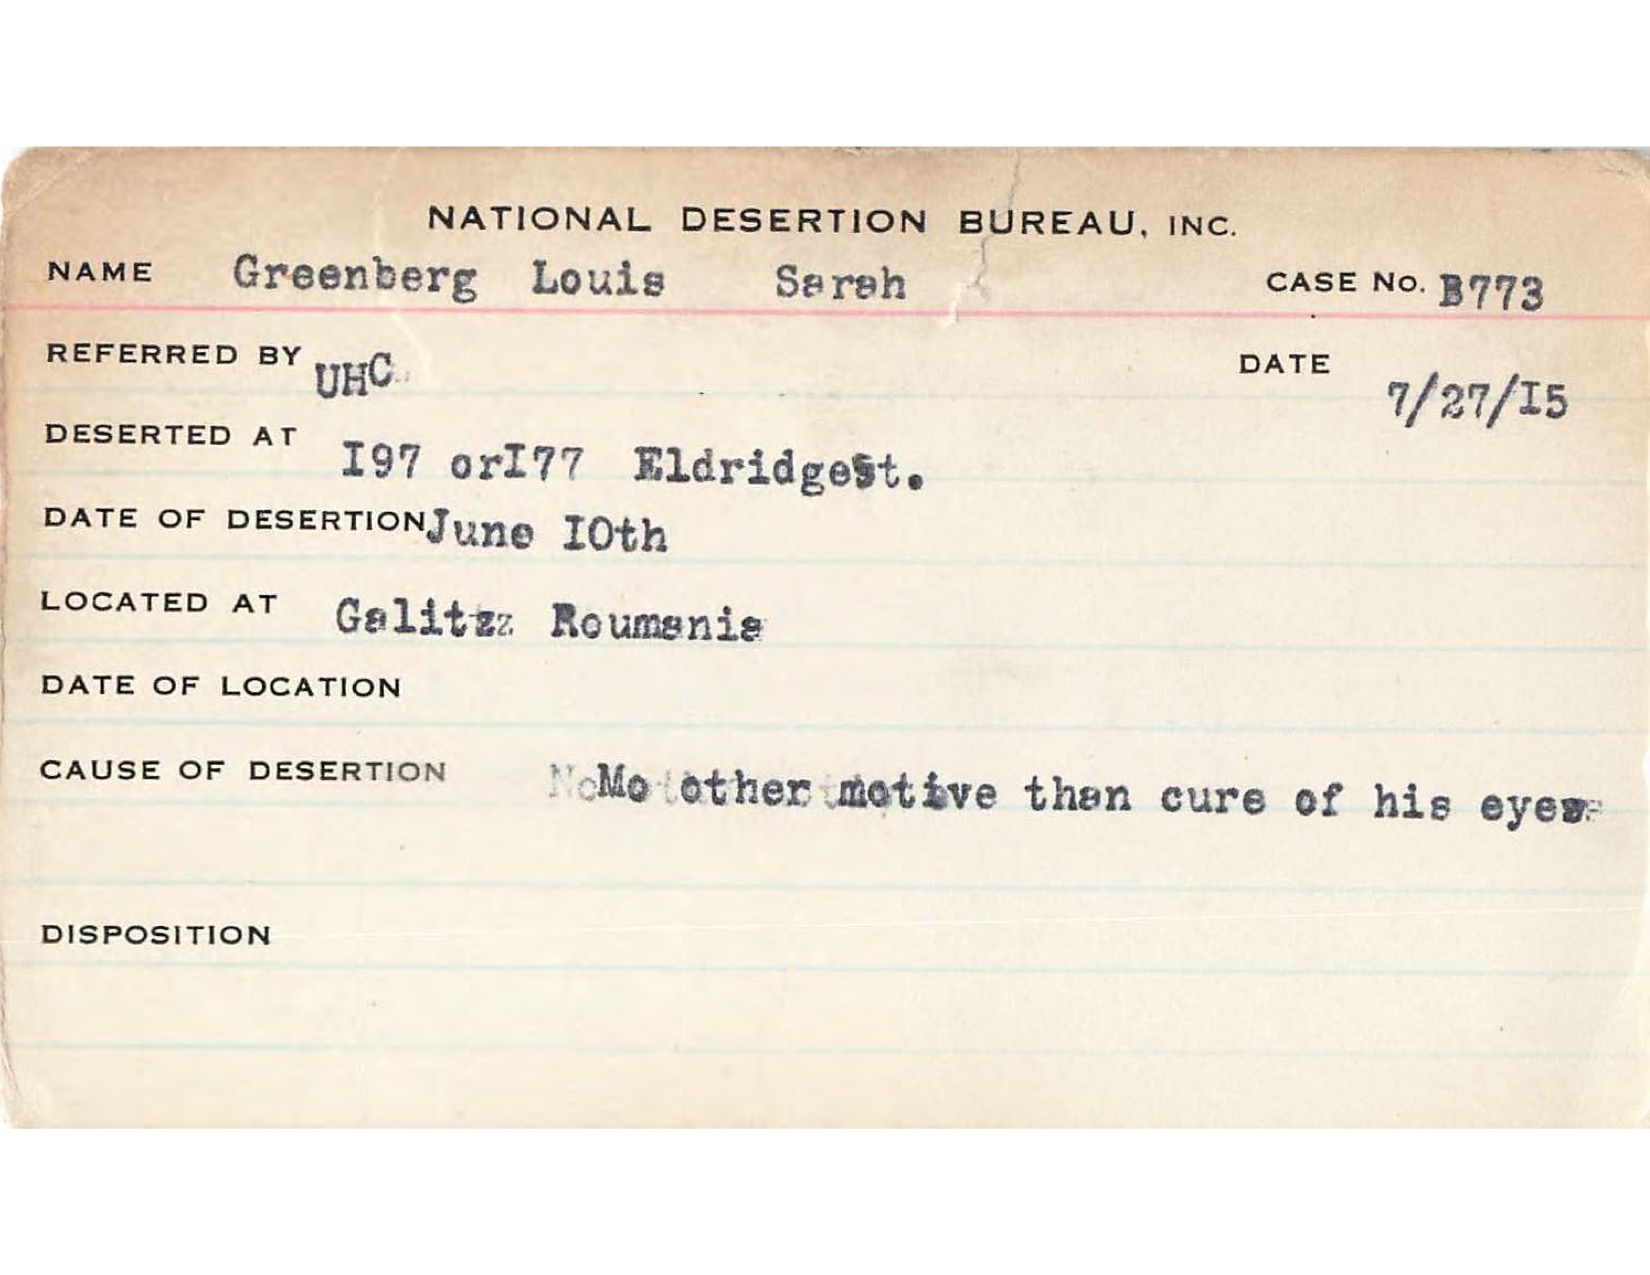 NATIONAL DESERTION BUREAU, INC.
NAME Greenberg Louis Sarah CASE No. B773
REFERRED BY UHC DATE 7/27/I5
DESERTED AT I97 orI77 Eldridgest.
DATE OF DESERTION June IOth
LOCATED AT Galitzz Roumania
DATE OF LOCATION
CAUSE OF DESERTION Mo other motive than cure of his eyes
DISPOSITION